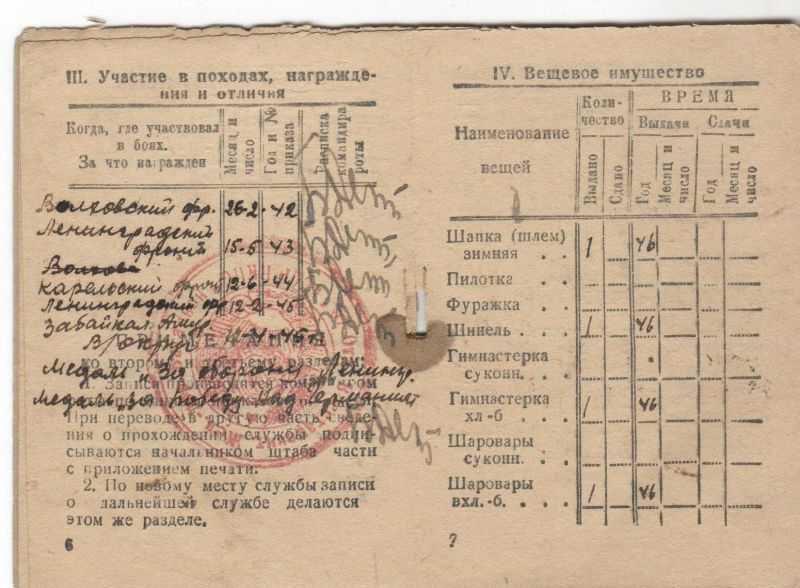 III. Участие в походах, награжде-
ния и отличия
Когда, где участвовал
в боях.
За что награжден
Месяц и
число
Год и №
приказа
Расписка
командира
роты
Волховский фр. 26-2-42
Ленинградский
фронт 15-5 43
Карельский фронт 12-6-44
Ленинградский фр 12-2-45
Забайкал. Амур.
ко второму и третьему разделам:
Медаль „За оборону Ленингр.
1. Записи производятся
медаль „За победу над Германией
При переводе в другую часть сведе-
ния о прохождении службы подпи-
сываются начальником штаба части
с приложением печати.
2. По новому месту службы записи
о дальнейшей службе делаются
этом же разделе.
6
IV. Вещевое имущество
Наименование
вещей
Коли-
чество
ВРЕМЯ
Выдачи
Сдачи
Выдано
Сдано
Год
Месяц и
число
Год
Месяц и
число
Шапка (шлем)
зимняя . . 1 46
Пилотка . . .
Фуражка . . .
Шинель . . . 1 46
Гимнастерка
суконн. . . .
Гимнастерка
хл-б . . . 1 46
Шаровары
суконн. . . .
Шаровары
вхл.-б. . . . 1 46
7